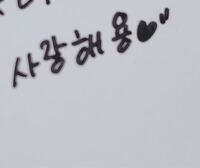 사랑해용♥"